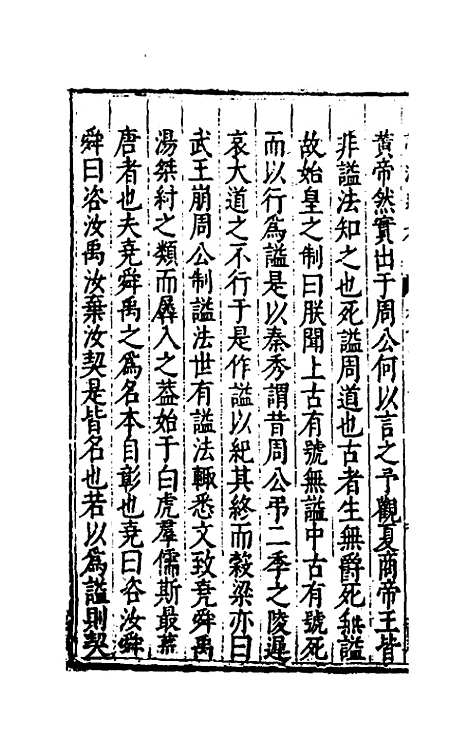 黃帝然實出于周公何以言之予觀夏商帝王皆
非謚法知之也死謚周道也古者生無爵死無謚
故始皇之制曰朕聞上古有號無謚中古有號死
而以行爲謚是以秦秀謂昔周公弔二季之陵遲
哀大道之不行于是作謚以紀其終而榖梁亦曰
武王崩周公制謚法世有謚法輙悉文致堯舜禹
湯桀紂之類而㝷入之葢始于白虎羣儒斯最蕪
唐者也夫堯舜禹之爲名本自彰也堯曰咨汝舜
舜曰咨汝禹汝棄汝契是皆名也若以爲謚則契